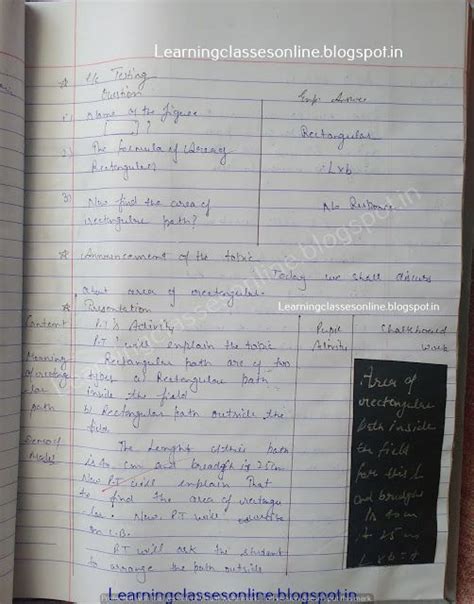 Learningclassesonline.blogspot.in
P/k Testing
Question
Exp. Answer
1) Name of the figure
?
Rectangular
2) The formula of (Area of
Rectangular)
L×b
3) Now find the area of
rectangular path?
No Response
Announcement of the topic
Today we shall discuss
about area of rectangular.
Learningclassesonline.blogspot.in
Presentation
Content
P.T's Activity
Pupil
Activity
Chalkboard
work
P.T will explain the topic
Meaning
of rectangu
lar
path
Rectangular path are of two
types a) Rectangular path
inside the field
b) Rectangular path outside the
field
The Lenght of this path
is 40 cm and breadth is 25cm
Now P.T will explain that
to find the area of rectangu
lar. Now P.T will
on L.B.
P.T will ask the student
to arrange the path outside
Area of
rectangular
path inside
the field
for this L
and breadth
is 40 cm
25 cm
L×b=A
Learningclassesonline.blogspot.in